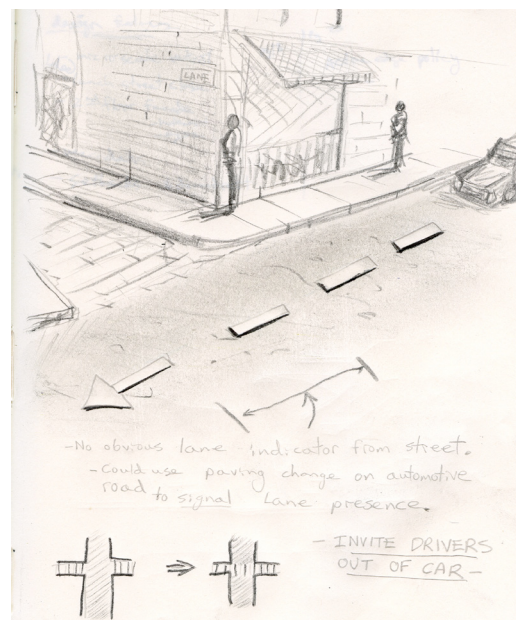 LANE
-No obvious lane indicator from street.
-Could use paving change on automotive
road to signal Lane presence.
- INVITE DRIVERS
OUT OF CAR -